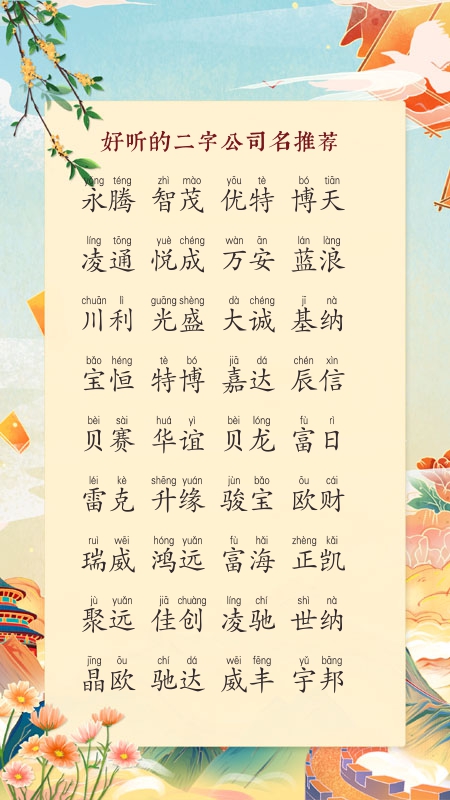 好听的二字公司名推荐
yǒng téng zhì mào yōu tè bó tiān
永腾 智茂 优特 博天
líng tōng yuè chéng wàn ān lán làng
凌通 悦成 万安 蓝浪
chuān lì guāng shèng dà chéng jī nà
川利 光盛 大诚 基纳
bǎo héng tè bó jiā dá chén xìn
宝恒 特博 嘉达 辰信
bèi sài huá yì bèi lóng fù rì
贝赛 华谊 贝龙 富日
léi kè shēng yuán jùn bǎo ōu cái
雷克 升缘 骏宝 欧财
ruì wēi hóng yuǎn fù hǎi zhèng kǎi
瑞威 鸿远 富海 正凯
jù yuǎn jiā chuàng líng chí shì nà
聚远 佳创 凌驰 世纳
jīng ōu chí dá wēi fēng yǔ bāng
晶欧 驰达 威丰 宇邦